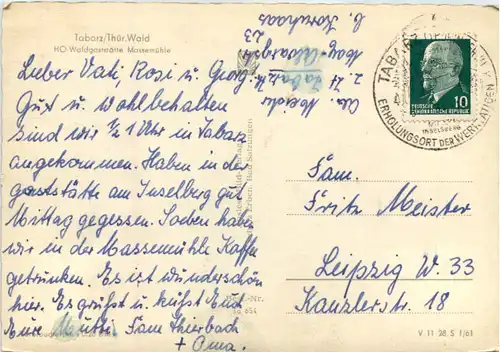 Tabarz/Thür. Wald
HO-Waldgaststätte Massemühle
Lieber Vati, Rosi u. Georg!
Gut u. wohlbehalten
sind wir ½ 1 Uhr in Tabarz
angekommen. Haben in der
gaststätte am Inselberg gut
Mittag gegessen. Soeben haben
wir in der Massemühle Kaffe
getrunken. Es ist wunderschön
hier. Es grüßt u. küßt Euch
Eure Mutti, Fam Thierbach
+ Oma.
Tabarz
23
TABARZ
INSELSBERG
ERHOLUNGSORT DER WERKTÄTIGEN
DEUTSCHE
DEMOKRATISCHE REPUBLIK
10
Fam.
Fritz Meister
Leipzig W. 33
Kanzlerstr. 18
V 11 28 S 1/61